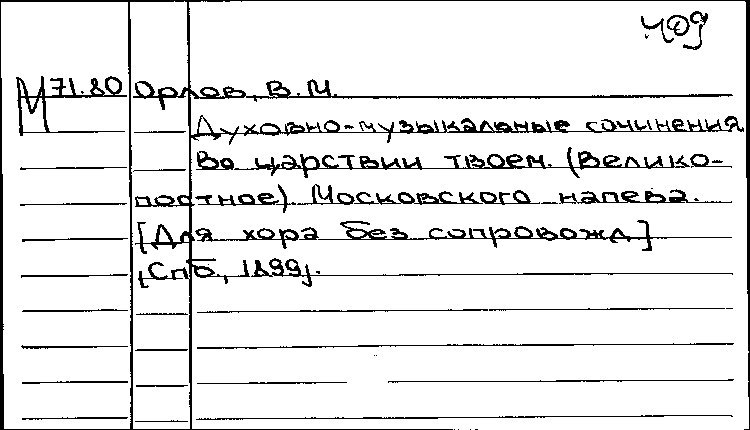 409
М 71.80 Орлов, В.М.
Духовно-музыкальные сочинения
Во царствии твоем. (Велико-
постное) Московского напева.
[Для хора без сопровожд.]
[Спб, 1899].